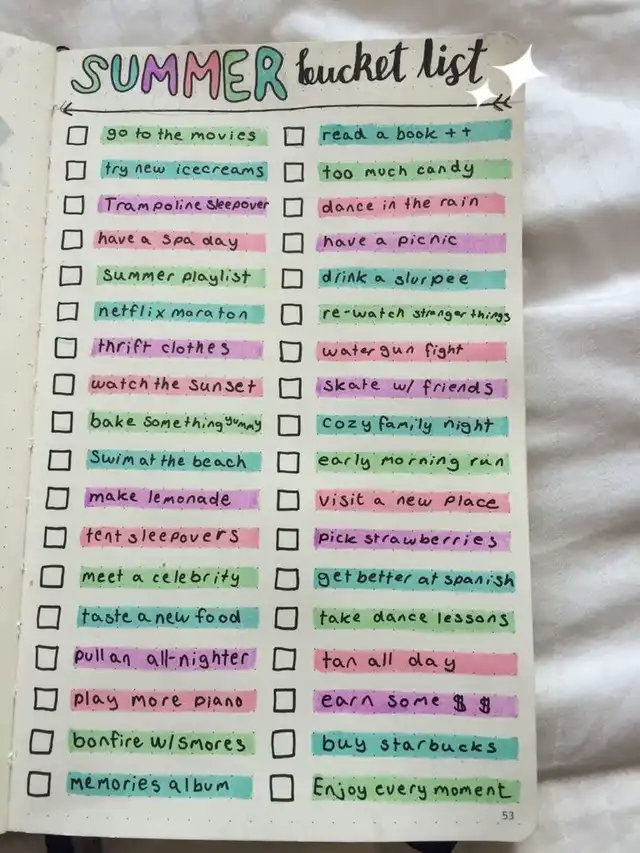 SUMMER bucket list
go to the movies
try new icecreams
Trampoline sleepover
have a spa day
summer playlist
netflix maraton
thrift clothes
watch the sunset
bake something yummy
Swim at the beach
make lemonade
tent sleepovers
meet a celebrity
taste a new food
pull an all-nighter
play more piano
bonfire w/smores
memories album
read a book ++
too much candy
dance in the rain
have a picnic
drink a slurpee
re-watch stranger things
water gun fight
skate w/ friends
cozy family night
early morning run
visit a new place
pick strawberries
get better at spanish
take dance lessons
tan all day
earn some $ $
buy starbucks
Enjoy every moment
53